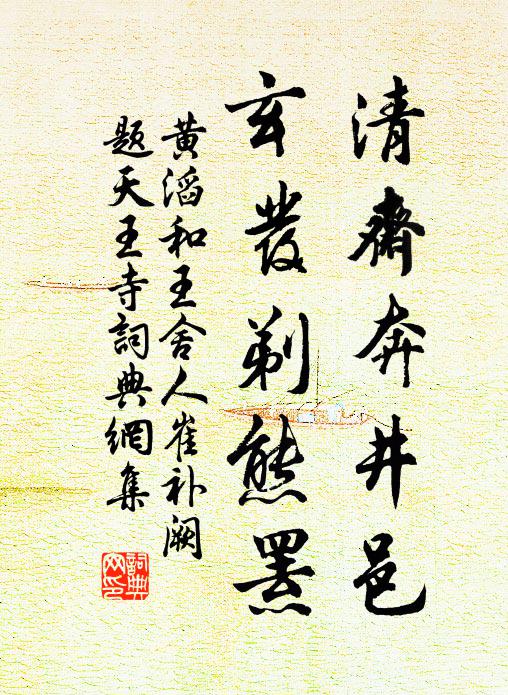 清齋奔井邑
玄發剃熊羆
黃滔和王舍人崔补阙
题天王寺詞典網集
詞典
网印